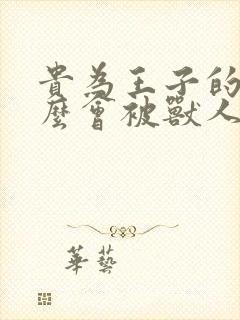 貴為王子的
麼會被獸人
華藝